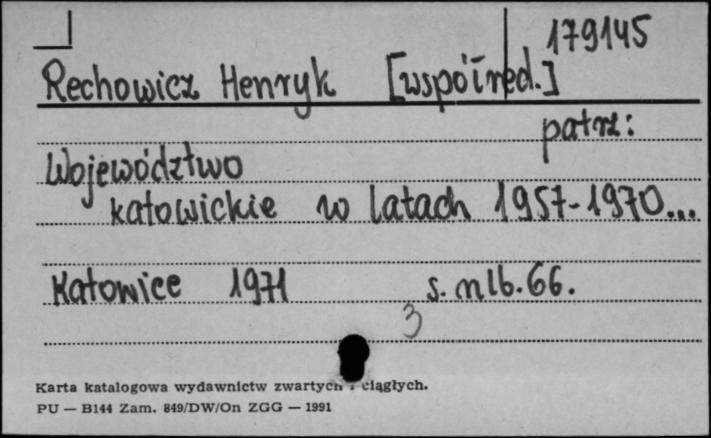 179145
Rechowicz Henryk [współred.]
patrz:
Województwo
katowickie w latach 1957-1970...
Katowice 1971 s. nlb. 66.
3
Karta katalogowa wydawnictw zwartych i ciągłych.
PU — B144 Zam. 849/DW/On ZGG — 1991